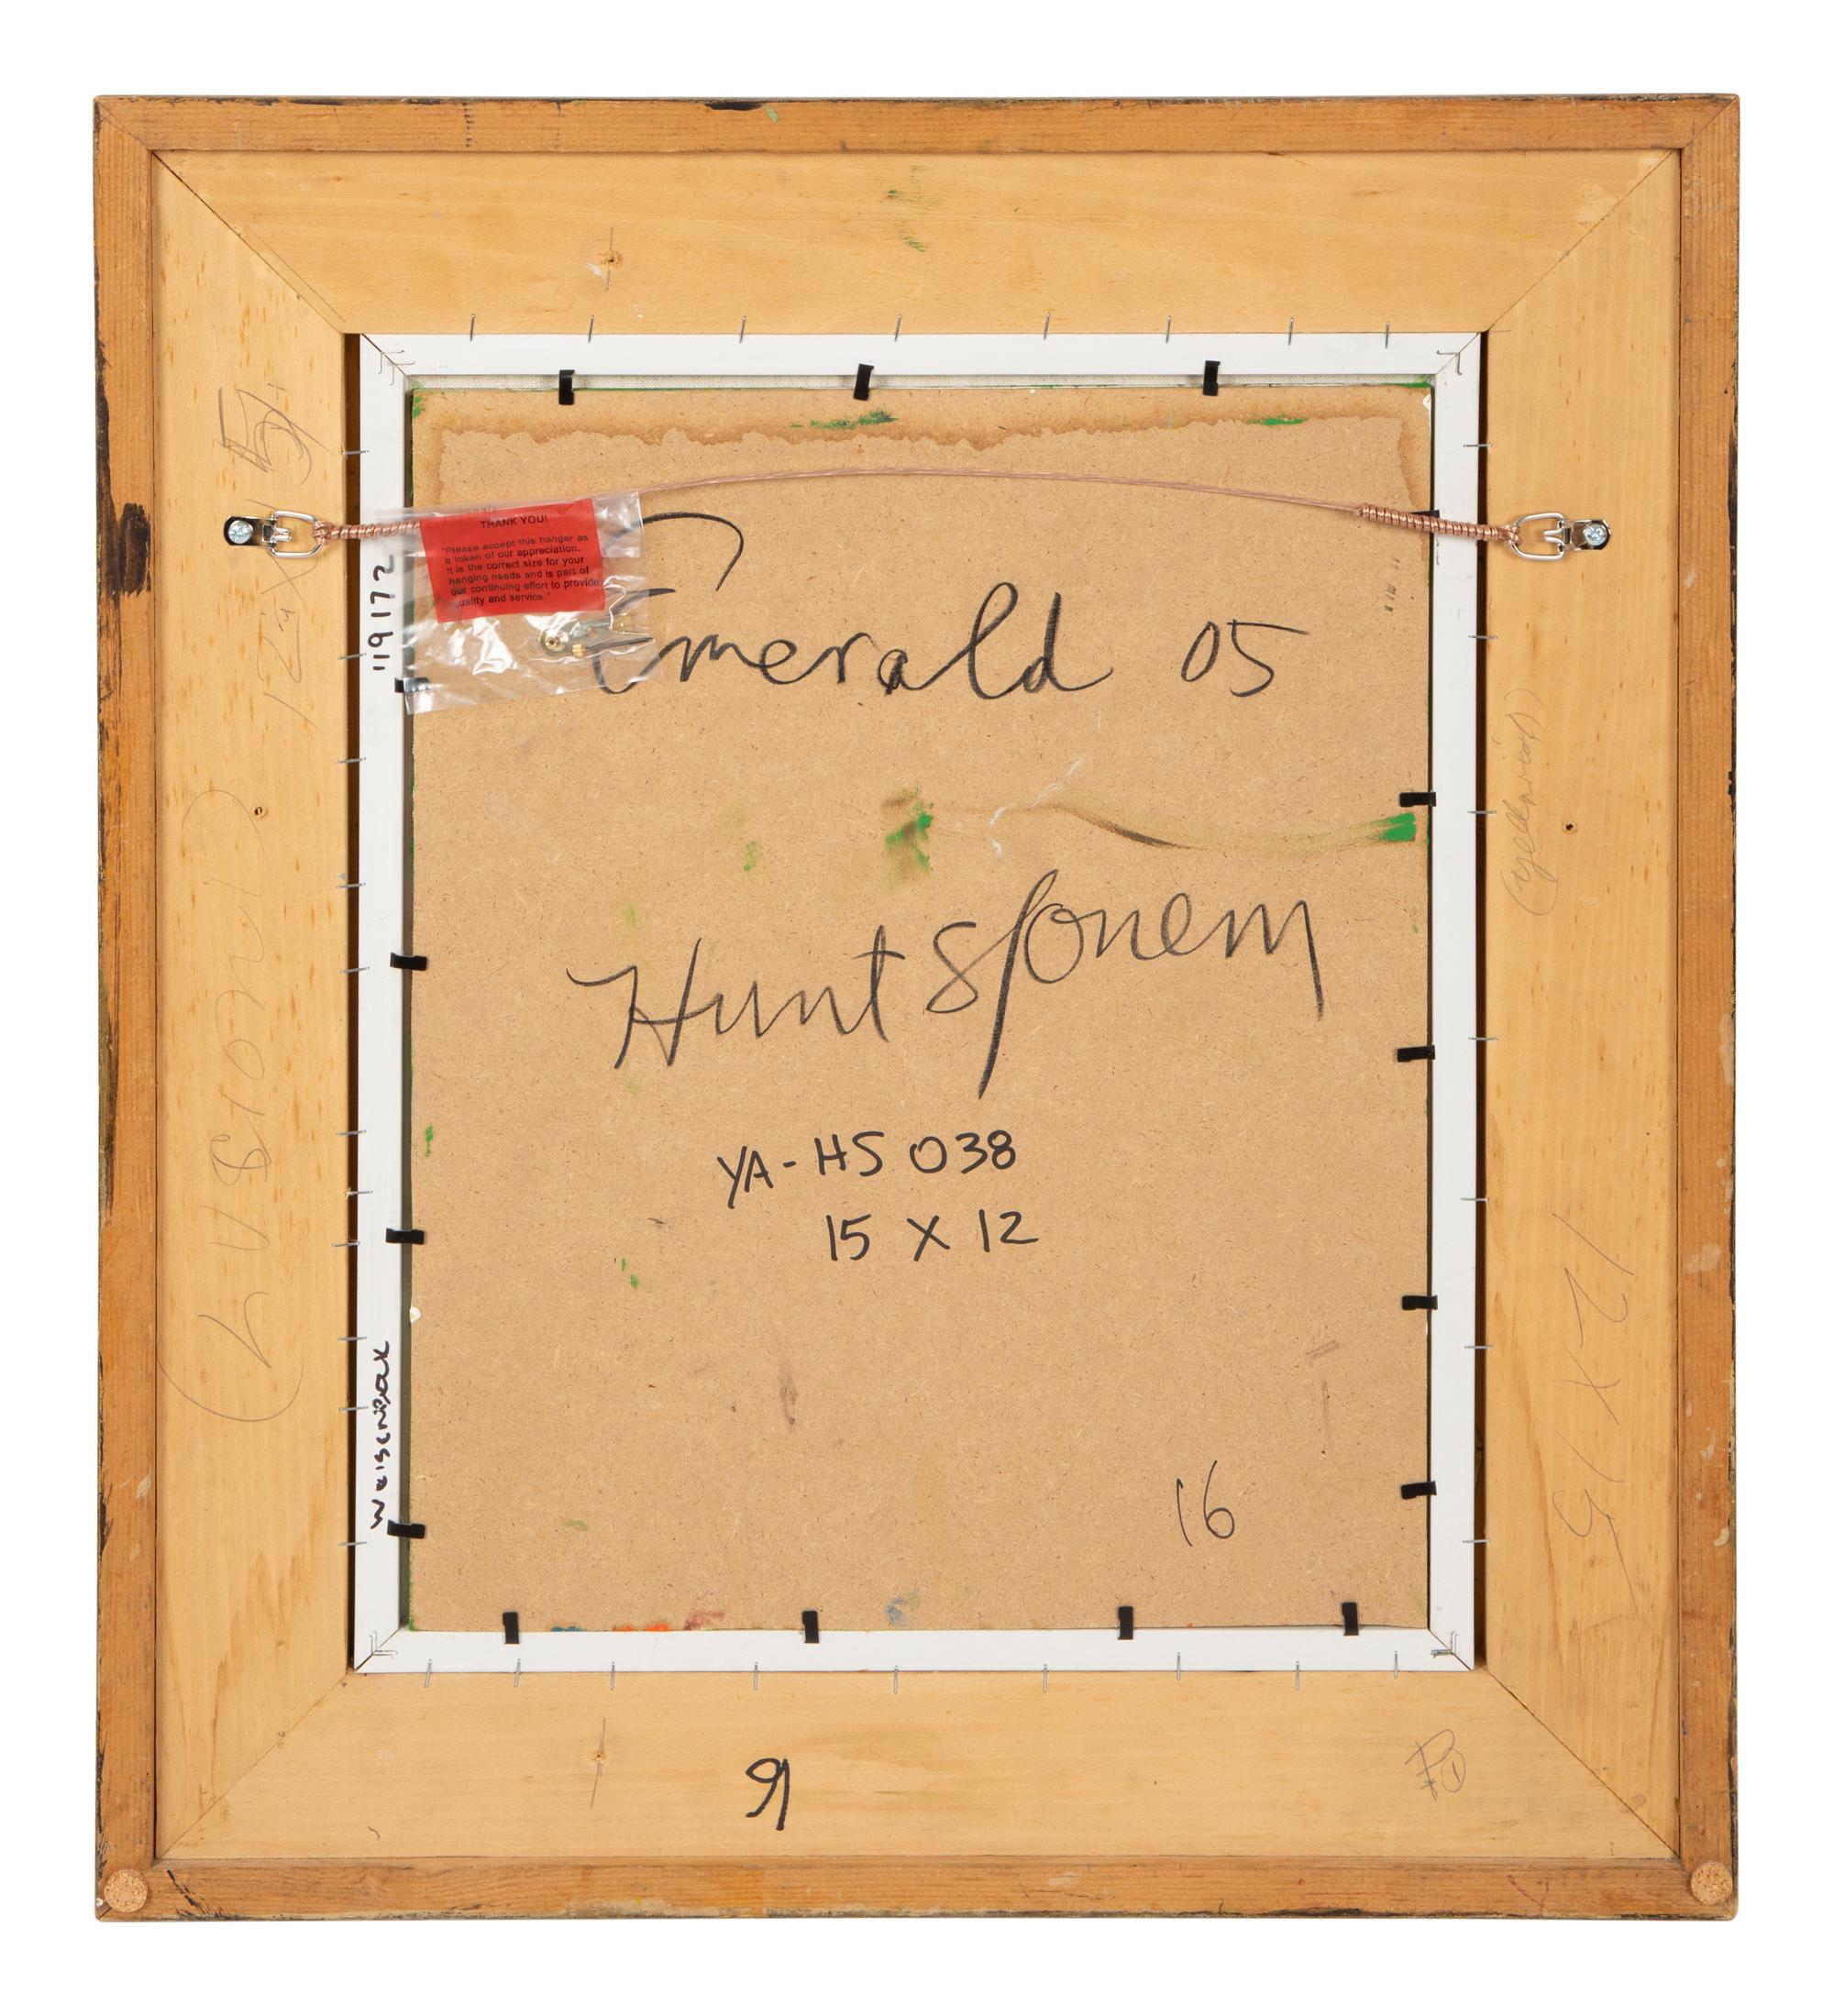 THANK YOU!
"Please accept this hanger as
a token of our appreciation.
It is the correct size for your
hanging needs and is part of
our continuing effort to provide
quality and service."
Emerald 05
Hunt Slonem
YA-HS 038
15 X 12
16
119172
12 X 15